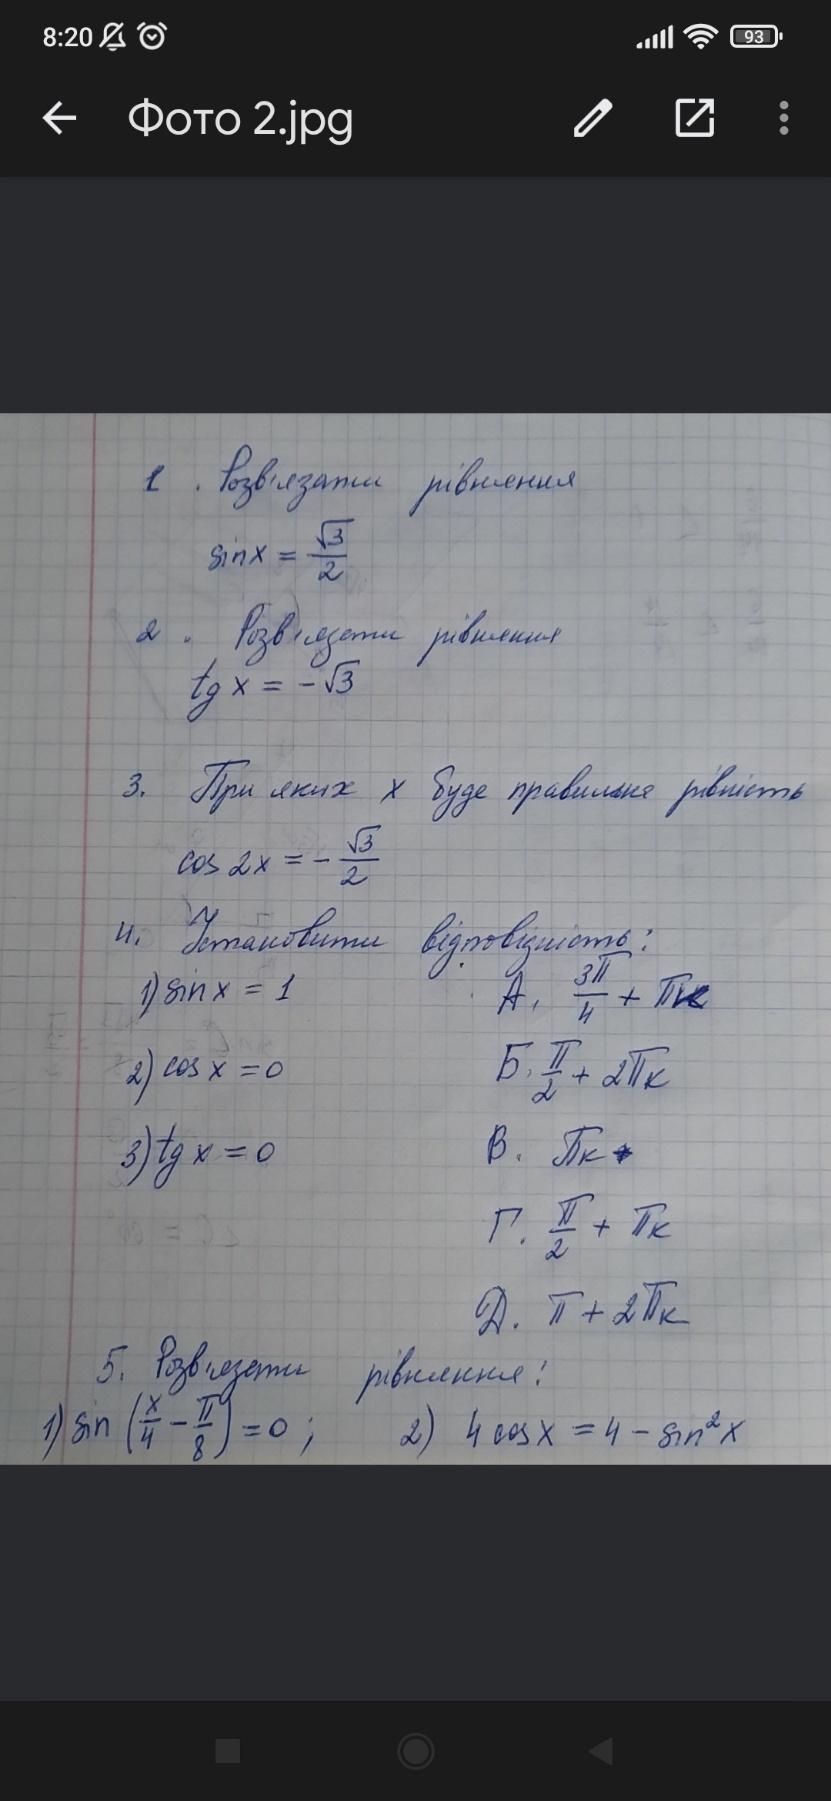 8:20
93
Фото 2.jpg
1. Розв'язати рівняння
sin x = √3/2
2. Розв'язати рівняння
tg x = -√3
3. При яких x буде правильна рівність
cos 2x = -√3/2
4. Установити відповідність:
1) sin x = 1 А. 3π/4 + πк
2) cos x = 0 Б. π/2 + 2πк
3) tg x = 0 В. πк
Г. π/2 + πк
Д. π + 2πк
5. Розв'язати рівняння:
1) sin (x/4 - π/8) = 0; 2) 4 cos x = 4 - sin²x